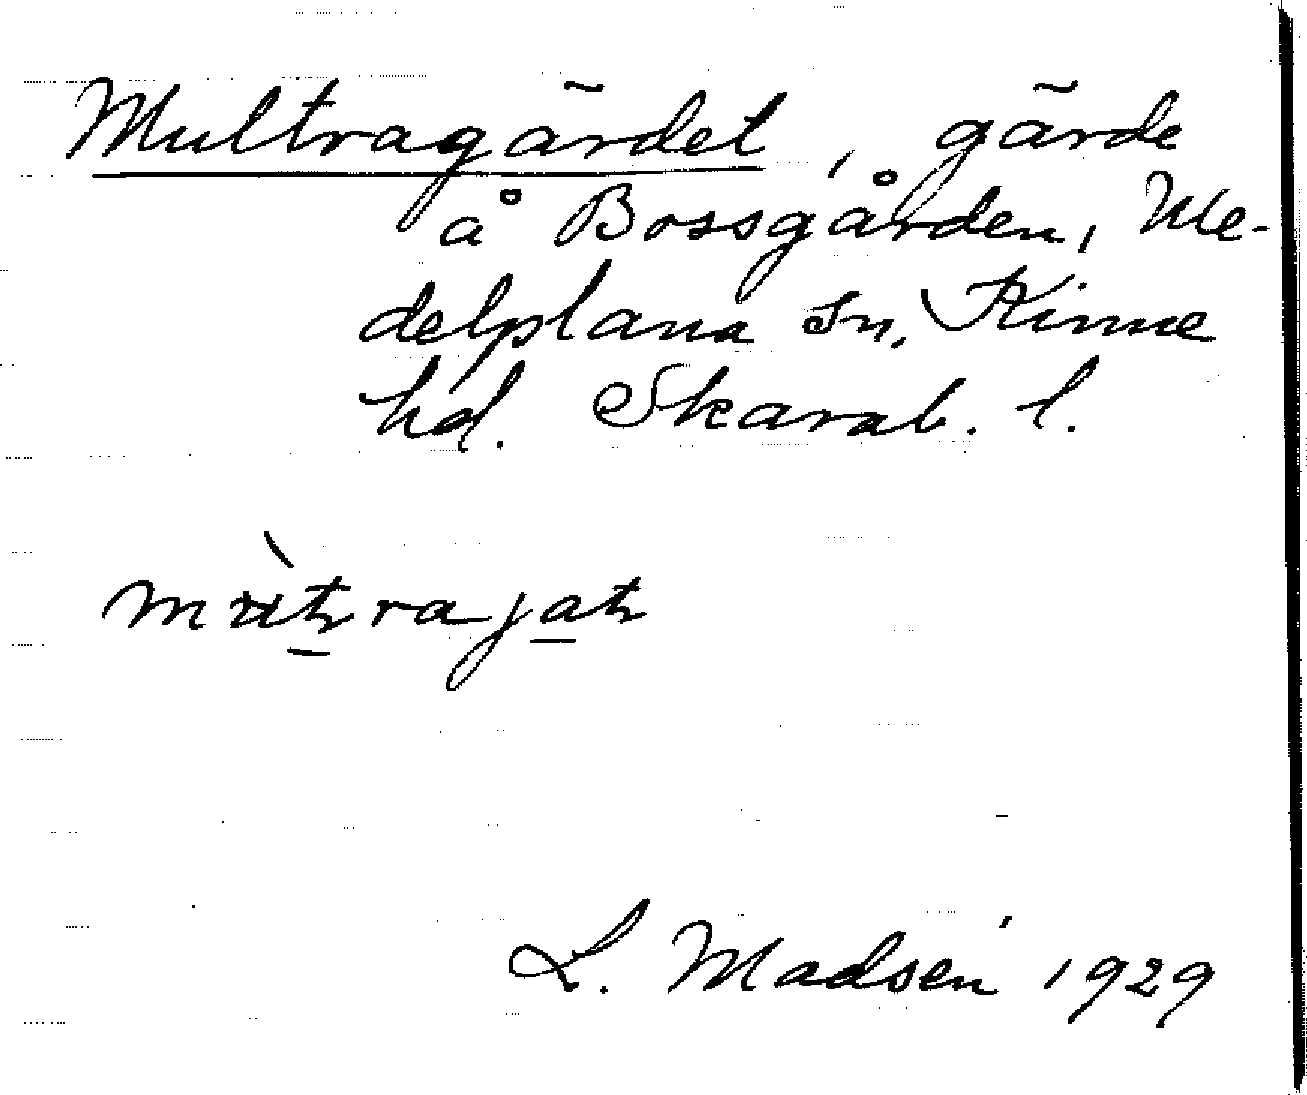 Multragärdet, gärde
å Bossgården, Me-
delplana sn, Kinne
hd. Skarab. l.
L. Madsén 1929